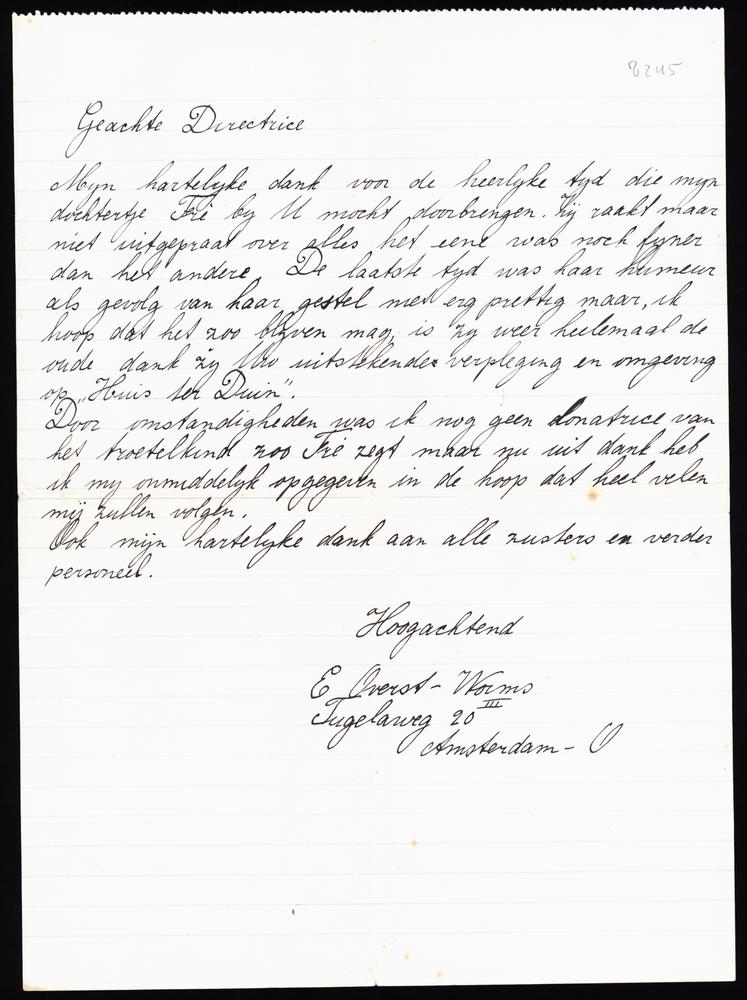 8245
Geachte Directrice
Mijn hartelijke dank voor de heerlijke tijd die mijn
dochtertje Fré bij U mocht doorbrengen. Zij raakt maar
niet uitgepraat over alles het eene was noch fijner
dan het andere. De laatste tijd was haar humeur
als gevolg van haar gestel niet erg prettig maar, ik
hoop dat het zoo blijven mag, is zij weer heelemaal de
oude dank zij Uw uitstekende verpleging en omgeving
op „Huis ter Duin".
Door omstandigheden was ik nog geen donatrice van
het troetelkind zoo Fré zegt maar nu uit dank heb
ik mij onmiddelijk opgegeven in de hoop dat heel velen
mij zullen volgen.
Ook mijn hartelijke dank aan alle zusters en verder
personeel.
Hoogachtend
E Overst-Worms
Tugelaweg 20 III
Amsterdam-O